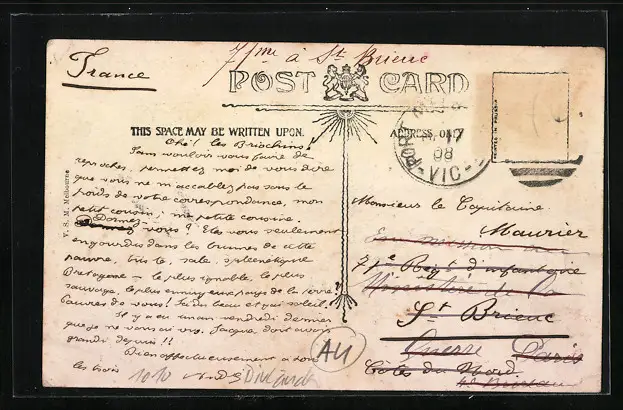 71me à St Brieuc
France
POST CARD
THIS SPACE MAY BE WRITTEN UPON.
ADDRESS ONLY
PORT MELB
17
08
VIC
V. S. M. Melbourne
Ohé! les Briochins!
Sans vouloir vous faire de
reproches, permettez moi de vous dire
que vous ne m'accablez pas sous le
poids de votre correspondance, mon
petit cousin, ma petite cousine.
Dormez-
vous? Etes vous seulement
engourdis dans les brumes de cette
pauvre, triste, sale, splénétique
Bretagne - le plus ignoble, le plus
sauvage, le plus ennuyeux pays de la terre?
Pauvres de vous! J'ai du beau et gai soleil!
Il y a eu un an vendredi dernier
que je ne vous ai vu. Jacques doit avoir
grandi depuis!!
Bien affectueusement à vous
les trois
Monsieur le Capitaine
Maurier
En mission au
71e Regt d'infanterie
Ministère de la
St Brieuc
Guerre Paris
Côtes du Nord
AU
1010